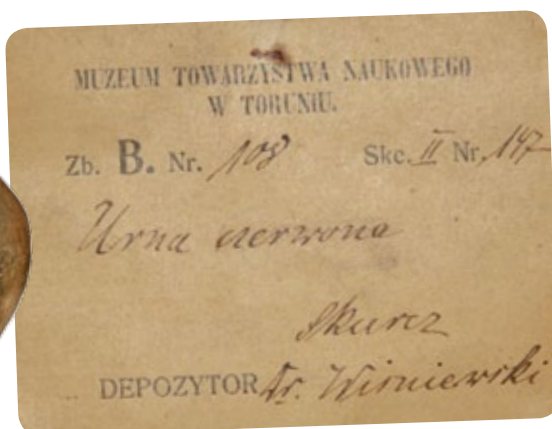 MUZEUM TOWARZYSTWA NAUKOWEGO
W TORUNIU.
Zb. B. Nr. 108 Skc. II Nr. 147
Urna czerwona
Skurcz
DEPOZYTOR Dr. Wiśniewski